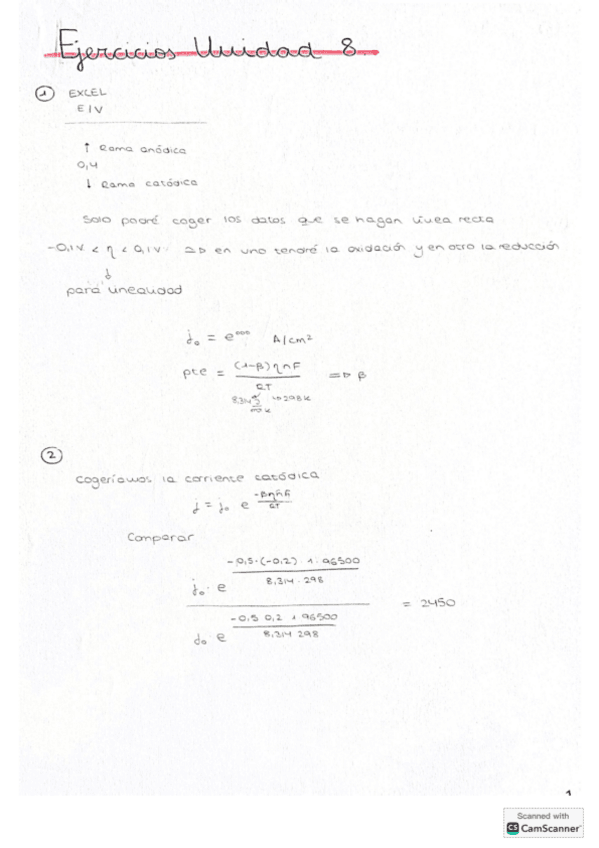 Ejercicios Unidad 8.
① EXCEL
E/V
↑ Rama anódica
0,4
↓ Rama catódica
Solo podré coger los datos que se hagan línea recta
-0,1V < η < 0,1V ⇒ en uno tendré la oxidación y en otro la reducción
↓
para linealidad
j₀ = e°°°° A/cm²
pte = (1-β)ηnF / RT ⇒ β
8,314 J/mol K ↳ 298 K
②
Cogeríamos la corriente catódica
j = j₀ e^(-βηnF / RT)
Comparar
j₀ · e^(-0,5·(-0,2)·1·96500 / 8,314·298)
/ j₀ · e^(-0,5 0,2 1 96500 / 8,314 298) = 2450
1
Scanned with
CS CamScanner